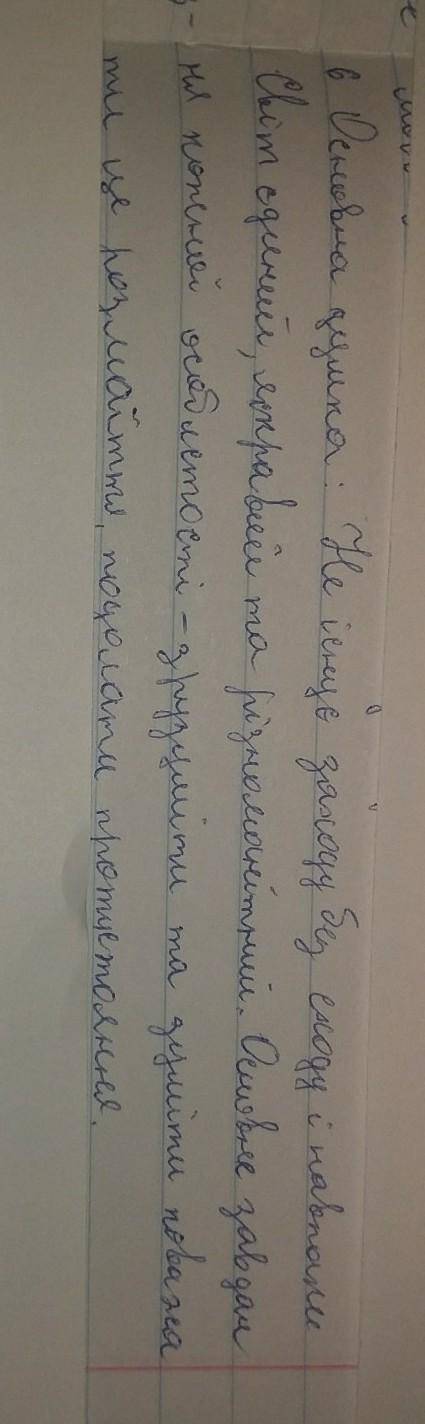 в Основна думка: Не існує заходу без сходу і навпаки
Світ єдиний, яскравий та різноманітний. Основне завдан
ня кожної особистості - зрузуміти та зуміти поважа
ти це розмаїття, подолати протистояння.